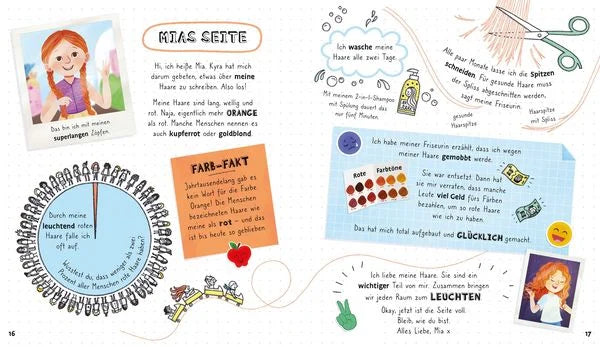 MIAS SEITE
Hi, ich heiße Mia. Kyra hat mich
darum gebeten, etwas über meine
Haare zu schreiben. Also los!
Meine Haare sind lang, wellig und
rot. Naja, eigentlich mehr ORANGE
als rot. Manche Menschen nennen es
auch kupferrot oder goldblond.
Das bin ich mit meinen
superlangen Zöpfen.
FARB-FAKT
Jahrtausendelang gab es
kein Wort für die Farbe
Orange! Die Menschen
bezeichneten Haare wie
meine als rot – und das
ist bis heute so geblieben.
Durch meine
leuchtend roten
Haare falle ich
oft auf.
Wusstest du, dass weniger als zwei
Prozent aller Menschen rote Haare haben?
16
Ich wasche meine
Haare alle zwei Tage.
Mit meinem 2-in-1-Shampoo
mit Spülung dauert das
nur fünf Minuten.
Alle paar Monate lasse ich die Spitzen
schneiden. Für gesunde Haare muss
der Spliss abgeschnitten werden,
sagt meine Friseurin.
gesunde
Haarspitze
Haarspitze
mit Spliss
Ich habe meiner Friseurin erzählt, dass ich wegen
meiner Haare gemobbt werde.
Rote Farbtöne
Sie war entsetzt. Dann hat
sie mir verraten, dass manche
Leute viel Geld fürs Färben
bezahlen, um so rote Haare
wie ich zu haben.
Das hat mich total aufgebaut und GLÜCKLICH gemacht.
Ich liebe meine Haare. Sie sind ein
wichtiger Teil von mir. Zusammen bringen
wir jeden Raum zum LEUCHTEN
Okay, jetzt ist die Seite voll.
Bleib, wie du bist.
Alles Liebe, Mia x
17